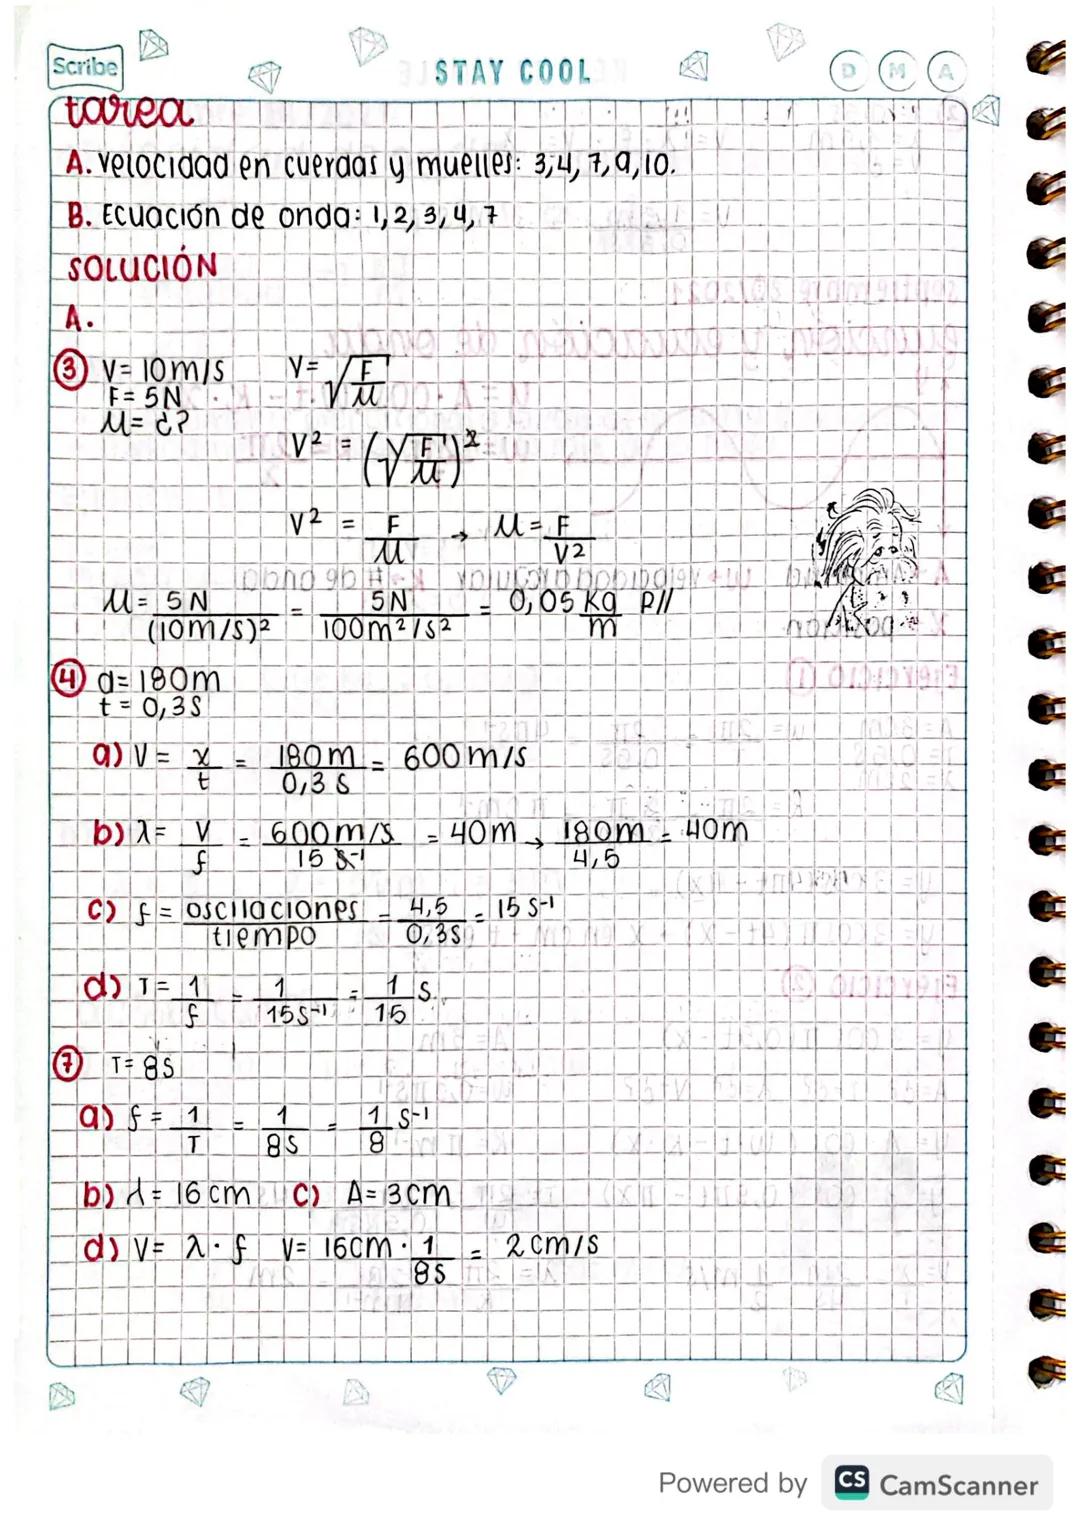 Scribe
STAY COOL
D M A
tarea
A. Velocidad en cuerdas y muelles: 3,4, 7, 9, 10.
B. Ecuación de onda: 1, 2, 3, 4, 7
SOLUCIÓN
A.
③ V= 10m/s V= √(F/μ)
F= 5N
μ= ¿?
V² = (√(F/μ))²
V² = F/μ → μ= F/V²
μ= 5N/(10m/s)² = 5N/100m²/s² = 0,05 kg/m R//
④ d= 180m
t = 0,3s
a) V= x/t = 180m/0,3s = 600m/s
b) λ= V/f = 600m/s/15 s⁻¹ = 40m → 180m/4,5 = 40m
c) f = oscilaciones/tiempo = 4,5/0,3s = 15 s⁻¹
d) T= 1/f = 1/15s⁻¹ = 1/15 s.
⑦ T= 8s
a) f = 1/T = 1/8s = 1/8 s⁻¹
b) λ= 16cm c) A= 3cm
d) V= λ· f V= 16cm · 1/8s = 2cm/s
Powered by CS CamScanner